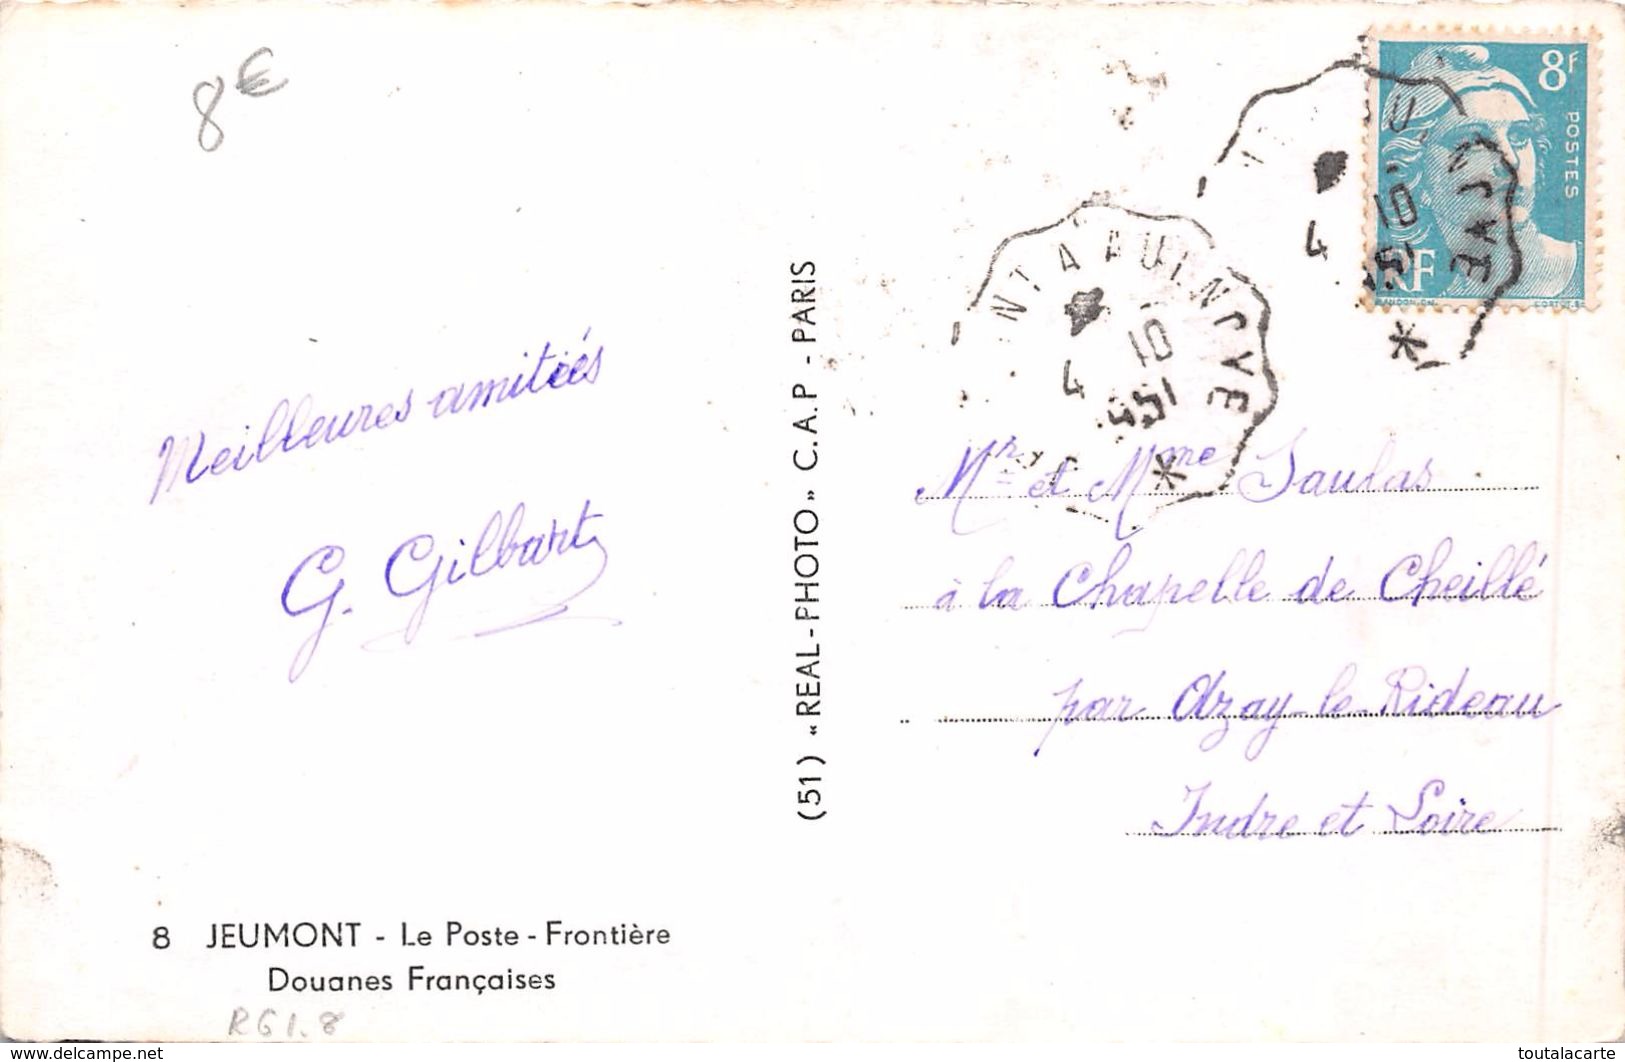 8€
8F
POSTES
RF
4
10
(51) «REAL-PHOTO» C.A.P - PARIS
4
10
Meilleures amitiés
G. Gilbart
Mr et Mme Saulas
à la Chapelle de Cheillé
par Azay-le-Rideau
Indre et Loire
8 JEUMONT - Le Poste - Frontière
Douanes Françaises
RG1.8
https://www.delcampe.net
toutalacarte